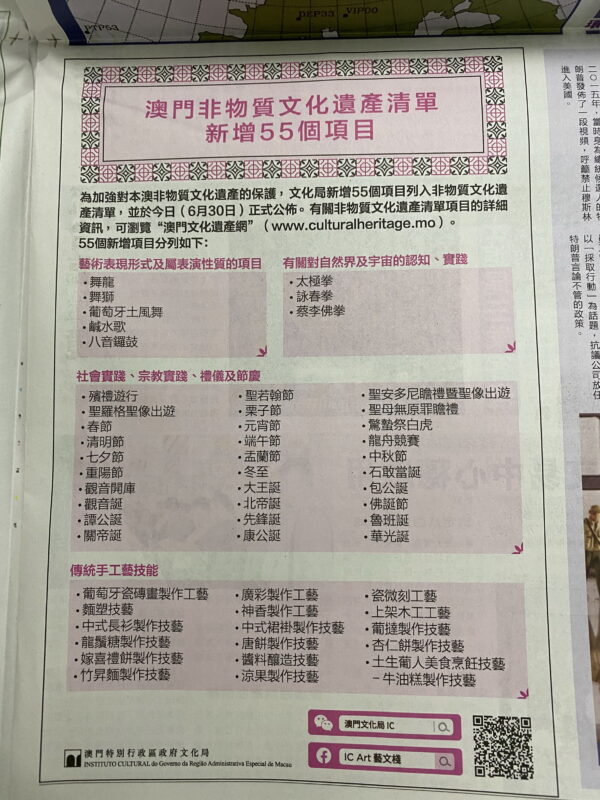 PTP53
DEP33
VIP00
澳門非物質文化遺產清單
新增55個項目
為加強對本澳非物質文化遺產的保護，文化局新增55個項目列入非物質文化遺
產清單，並於今日（6月30日）正式公佈。有關非物質文化遺產清單項目的詳細
資訊，可瀏覽“澳門文化遺產網”（www.culturalheritage.mo）。
55個新增項目分列如下：
藝術表現形式及屬表演性質的項目
•舞龍
•舞獅
•葡萄牙土風舞
•鹹水歌
•八音鑼鼓
有關對自然界及宇宙的認知、實踐
•太極拳
•詠春拳
•蔡李佛拳
社會實踐、宗教實踐、禮儀及節慶
•殯禮遊行
•聖羅格聖像出遊
•春節
•清明節
•七夕節
•重陽節
•觀音開庫
•觀音誕
•譚公誕
•關帝誕
•聖若翰節
•栗子節
•元宵節
•端午節
•盂蘭節
•冬至
•大王誕
•北帝誕
•先鋒誕
•康公誕
•聖安多尼瞻禮暨聖像出遊
•聖母無原罪瞻禮
•驚蟄祭白虎
•龍舟競賽
•中秋節
•石敢當誕
•包公誕
•佛誕節
•魯班誕
•華光誕
傳統手工藝技能
•葡萄牙瓷磚畫製作工藝
•麵塑技藝
•中式長衫製作技藝
•龍鬚糖製作技藝
•嫁喜禮餅製作技藝
•竹昇麵製作技藝
•廣彩製作工藝
•神香製作工藝
•中式裙褂製作技藝
•唐餅製作技藝
•醬料釀造技藝
•涼果製作技藝
•瓷微刻工藝
•上架木工工藝
•葡撻製作技藝
•杏仁餅製作技藝
•土生葡人美食烹飪技藝
–牛油糕製作技藝
澳門文化局 IC
IC Art 藝文棧
澳門特別行政區政府文化局
INSTITUTO CULTURAL do Governo da Região Administrativa Especial de Macau
朗普發佈了一段視頻，呼籲禁止穆斯林
進入美國。
以「採取行動」為話題，抗議公司放任
特朗普言論不管的政策。